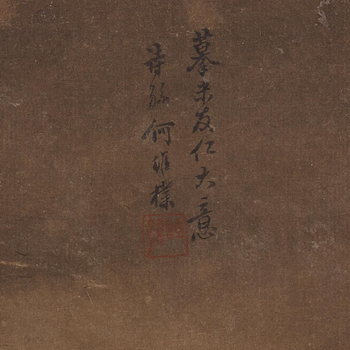 摹米友仁大意
詩孫何維樸